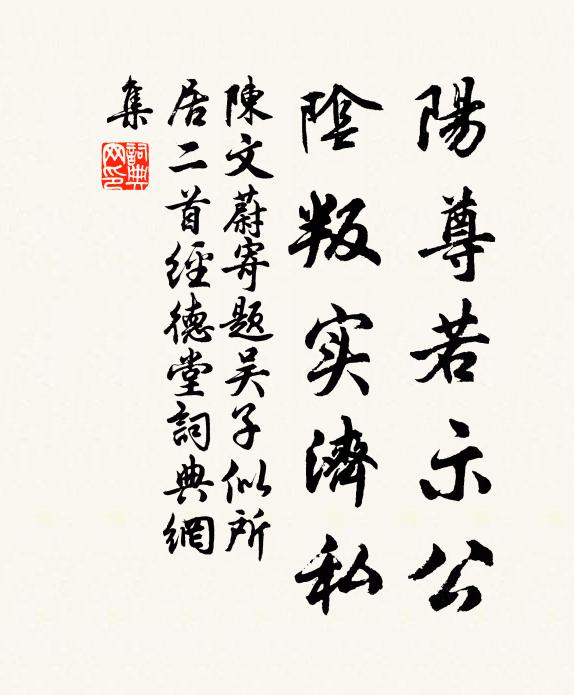 陽尊若示公
陰叛实濟私
陳文蔚寄題吴子似所
居二首經德堂詞典網
集
詞典
网印